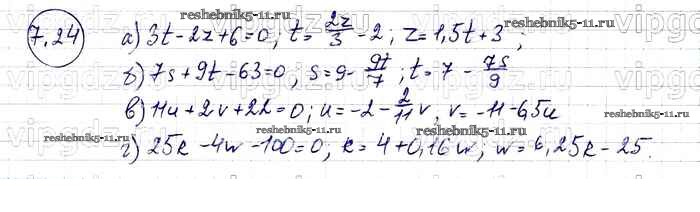 reshebnik5-11.ru reshebnik5-11.ru
7.24 а) 3t-2z+6=0, t=2z/3-2; z=1,5t+3;
б) 7s+9t-63=0, s=9-9t/7; t=7-7s/9
в) 11u+2v+22=0; u=-2-2/11v, v=-11-5,5u
reshebnik5-11.ru reshebnik5-11.ru
г) 25k-4w-100=0, k=4+0,16w, w=6,25k-25.
reshebnik5-11.ru reshebnik5-11.ru